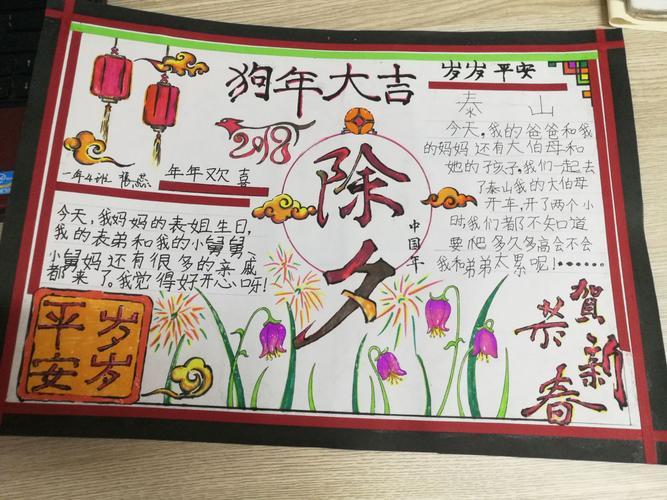 狗年大吉
岁岁平安
2018
一年4班 杨燕
年年欢喜
今天,我妈妈的表姐生日,
我的表弟和我的小舅舅、
小舅妈还有很多的亲戚
都来了。我觉得好开心呀!
岁岁
平安
除夕
中国年
泰山
今天,我的爸爸和我
的妈妈还有大伯母和
她的孩子,我们一起去
了泰山我的大伯母
开车,开了两个小
时我们都不知道
要爬多久多高会不会
我和弟弟太累呢!……
贺新
恭春